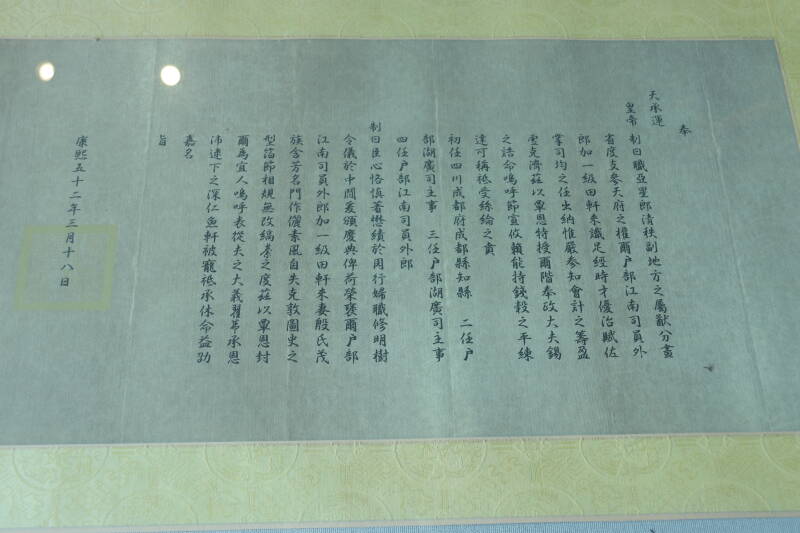 奉
天承運
皇帝制曰職亞星郎清秩副地方之屬猷分畫
省度支參天府之權爾户部江南司員外
郎加一級田軒来識足經時才優治賦佐
掌司均之任出納惟嚴参知會計之籌盈
虚克濟茲以覃恩特授爾階奉政大夫錫
之誥命嗚呼節宣攸賴能持錢穀之平練
達可稱祗受絲綸之賁
初任四川成都府成都縣知縣 二任户
部湖廣司主事 三任户部湖廣司主事
四任户部江南司員外郎
制曰臣心恪慎著懋績於周行婦職修明樹
令儀於中閫爰頒慶典俾荷榮褒爾户部
江南司員外郎加一級田軒来妻殷氏茂
族含芳名門作儷素風自失克敦圖史之
型箴節相規無改縞綦之度茲以覃恩封
爾為宜人嗚呼表從夫之大義翟茀承恩
沛逮下之深仁魚軒被寵祗承休命益劭
嘉名
旨
康熙五十二年三月十八日